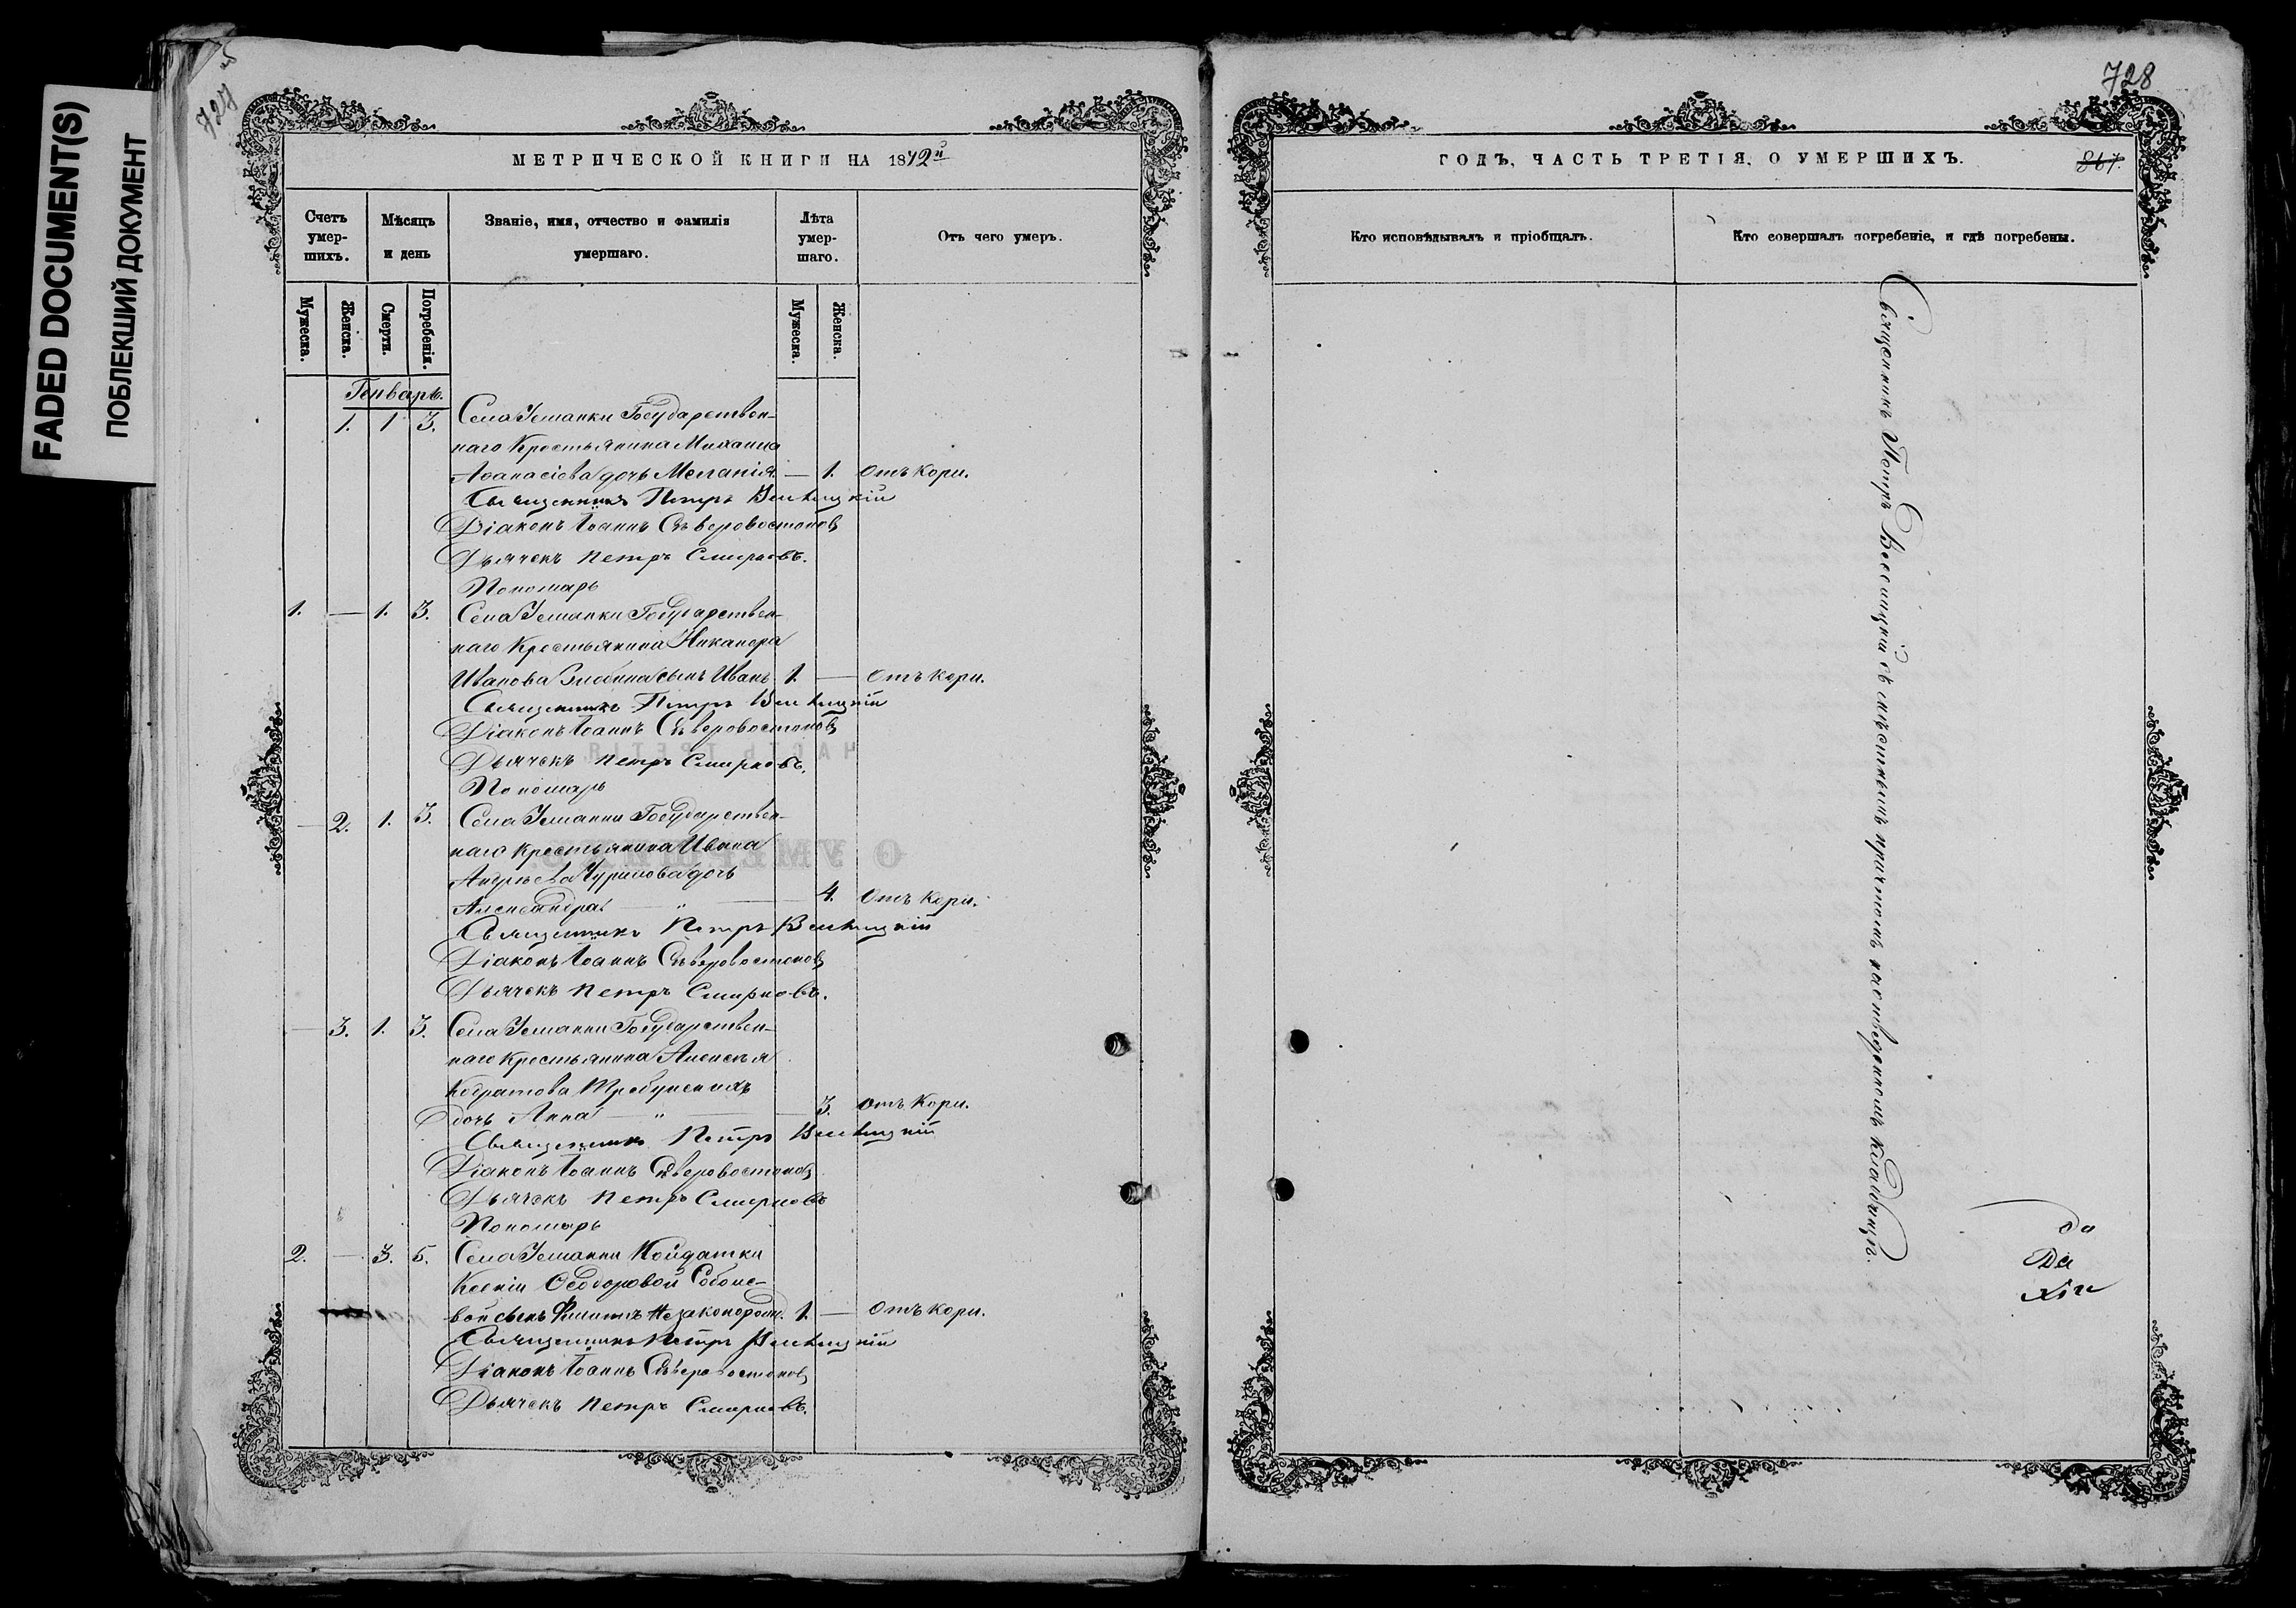 FADED DOCUMENT(S)
ПОБЛЕКШИЙ ДОКУМЕНТ
727
МЕТРИЧЕСКОЙ КНИГИ НА 1872й
Счетъ умер-шихъ.
Мѣсяцъ и день
Званіе, имя, отчество и фамилія умершаго.
Лѣта умер-шаго.
Отъ чего умеръ.
Мужеска.
Женска.
Смерти.
Погребенія.
Мужеска.
Женска.
Генварь.
1. 1 3. Села Усманки Государствен-
наго Крестьянина Михаила
Аѳанасіева дочь Меланія — 1. Отъ Кори.
Священникъ Петръ
Діаконъ Іоаннъ Сѣверовостоковъ
Дьячекъ Петръ Смирновъ.
Пономарь
1. — 1. 3. Села Усманки Государствен-
наго Крестьянина Никанора
Иванова Злобина сынъ Иванъ 1. — Отъ Кори.
Священникъ Петръ
Діаконъ Іоаннъ Сѣверовостоковъ
Дьячекъ Петръ Смирновъ.
Пономарь
— 2. 1. 3. Села Усманки Государствен-
наго Крестьянина Ивана
Андреева Чурилова дочь
Александра — " — 4. Отъ Кори.
Священникъ Петръ
Діаконъ Іоаннъ Сѣверовостоковъ
Дьячекъ Петръ Смирновъ.
— 3. 1. 3. Села Усманки Государствен-
наго Крестьянина Алексѣя
дочь Анна — " — 3. Отъ Кори.
Священникъ Петръ
Діаконъ Іоаннъ Сѣверовостоковъ
Дьячекъ Петръ Смирновъ
Пономарь
2. — 3. 5. Села Усманки
Ксеніи Ѳеодоровой Соболе-
вой сынъ Филиппъ Незаконорожд. 1. — Отъ Кори.
Священникъ Петръ
Діаконъ Іоаннъ Сѣверовостоковъ
Дьячекъ Петръ Смирновъ.
728
ГОДЪ, ЧАСТЬ ТРЕТІЯ, О УМЕРШИХЪ.
867.
Кто исповѣдывалъ и пріобщалъ.
Кто совершалъ погребеніе, и гдѣ погребены.
Священникъ Петръ съ мѣстнымъ причтомъ на отведенномъ кладбищѣ.